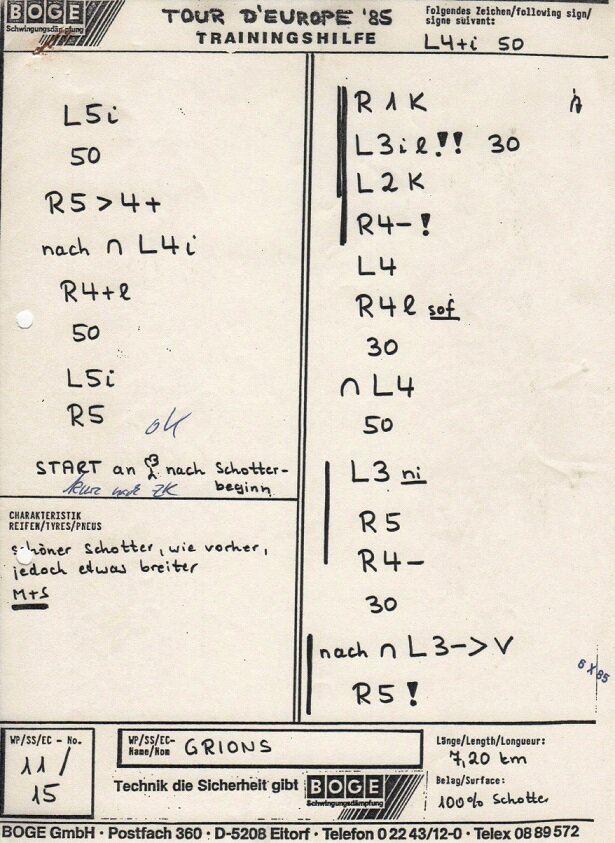 BOGE
Schwingungsdämpfung
TOUR D'EUROPE '85
TRAININGSHILFE
Folgendes Zeichen/following sign/
signe suivant:
L4+i 50
L5i
50
R5 > 4+
nach ∩ L4i
R4+l
50
L5i
R5
ok
START an nach Schotter-
beginn
ZK
CHARAKTERISTIK
REIFEN/TYRES/PNEUS
schöner Schotter, wie vorher,
jedoch etwas breiter
M+S
R1K
L3il!! 30
L2K
R4-!
L4
R4l sof
30
∩ L4
50
L3 ni
R5
R4-
30
nach ∩ L3-> V
R5!
6 X 85
WP/SS/EC - No.
11/
15
WP/SS/EC-
Name/Nom
GRIONS
Technik die Sicherheit gibt
BOGE
Schwingungsdämpfung
Länge/Length/Longueur:
7,20 km
Belag/Surface:
100% Schotter
BOGE GmbH · Postfach 360 · D-5208 Eitorf · Telefon 0 22 43/12-0 · Telex 08 89 572